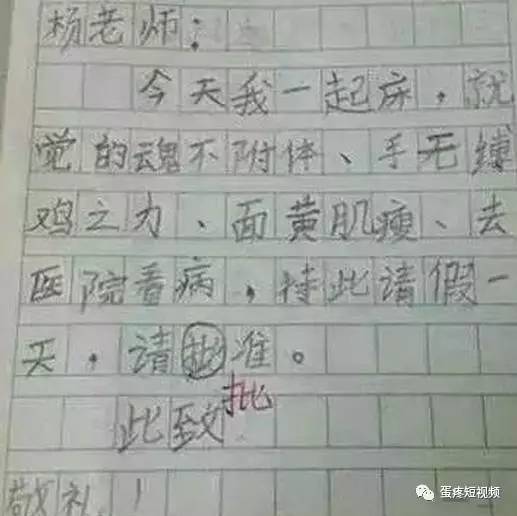 杨老师：
今天我一起床，就
觉的魂不附体、手无缚
鸡之力、面黄肌瘦、去
医院看病，持此请假一
天，请批准。
批
此致
敬礼！
蛋疼短视频